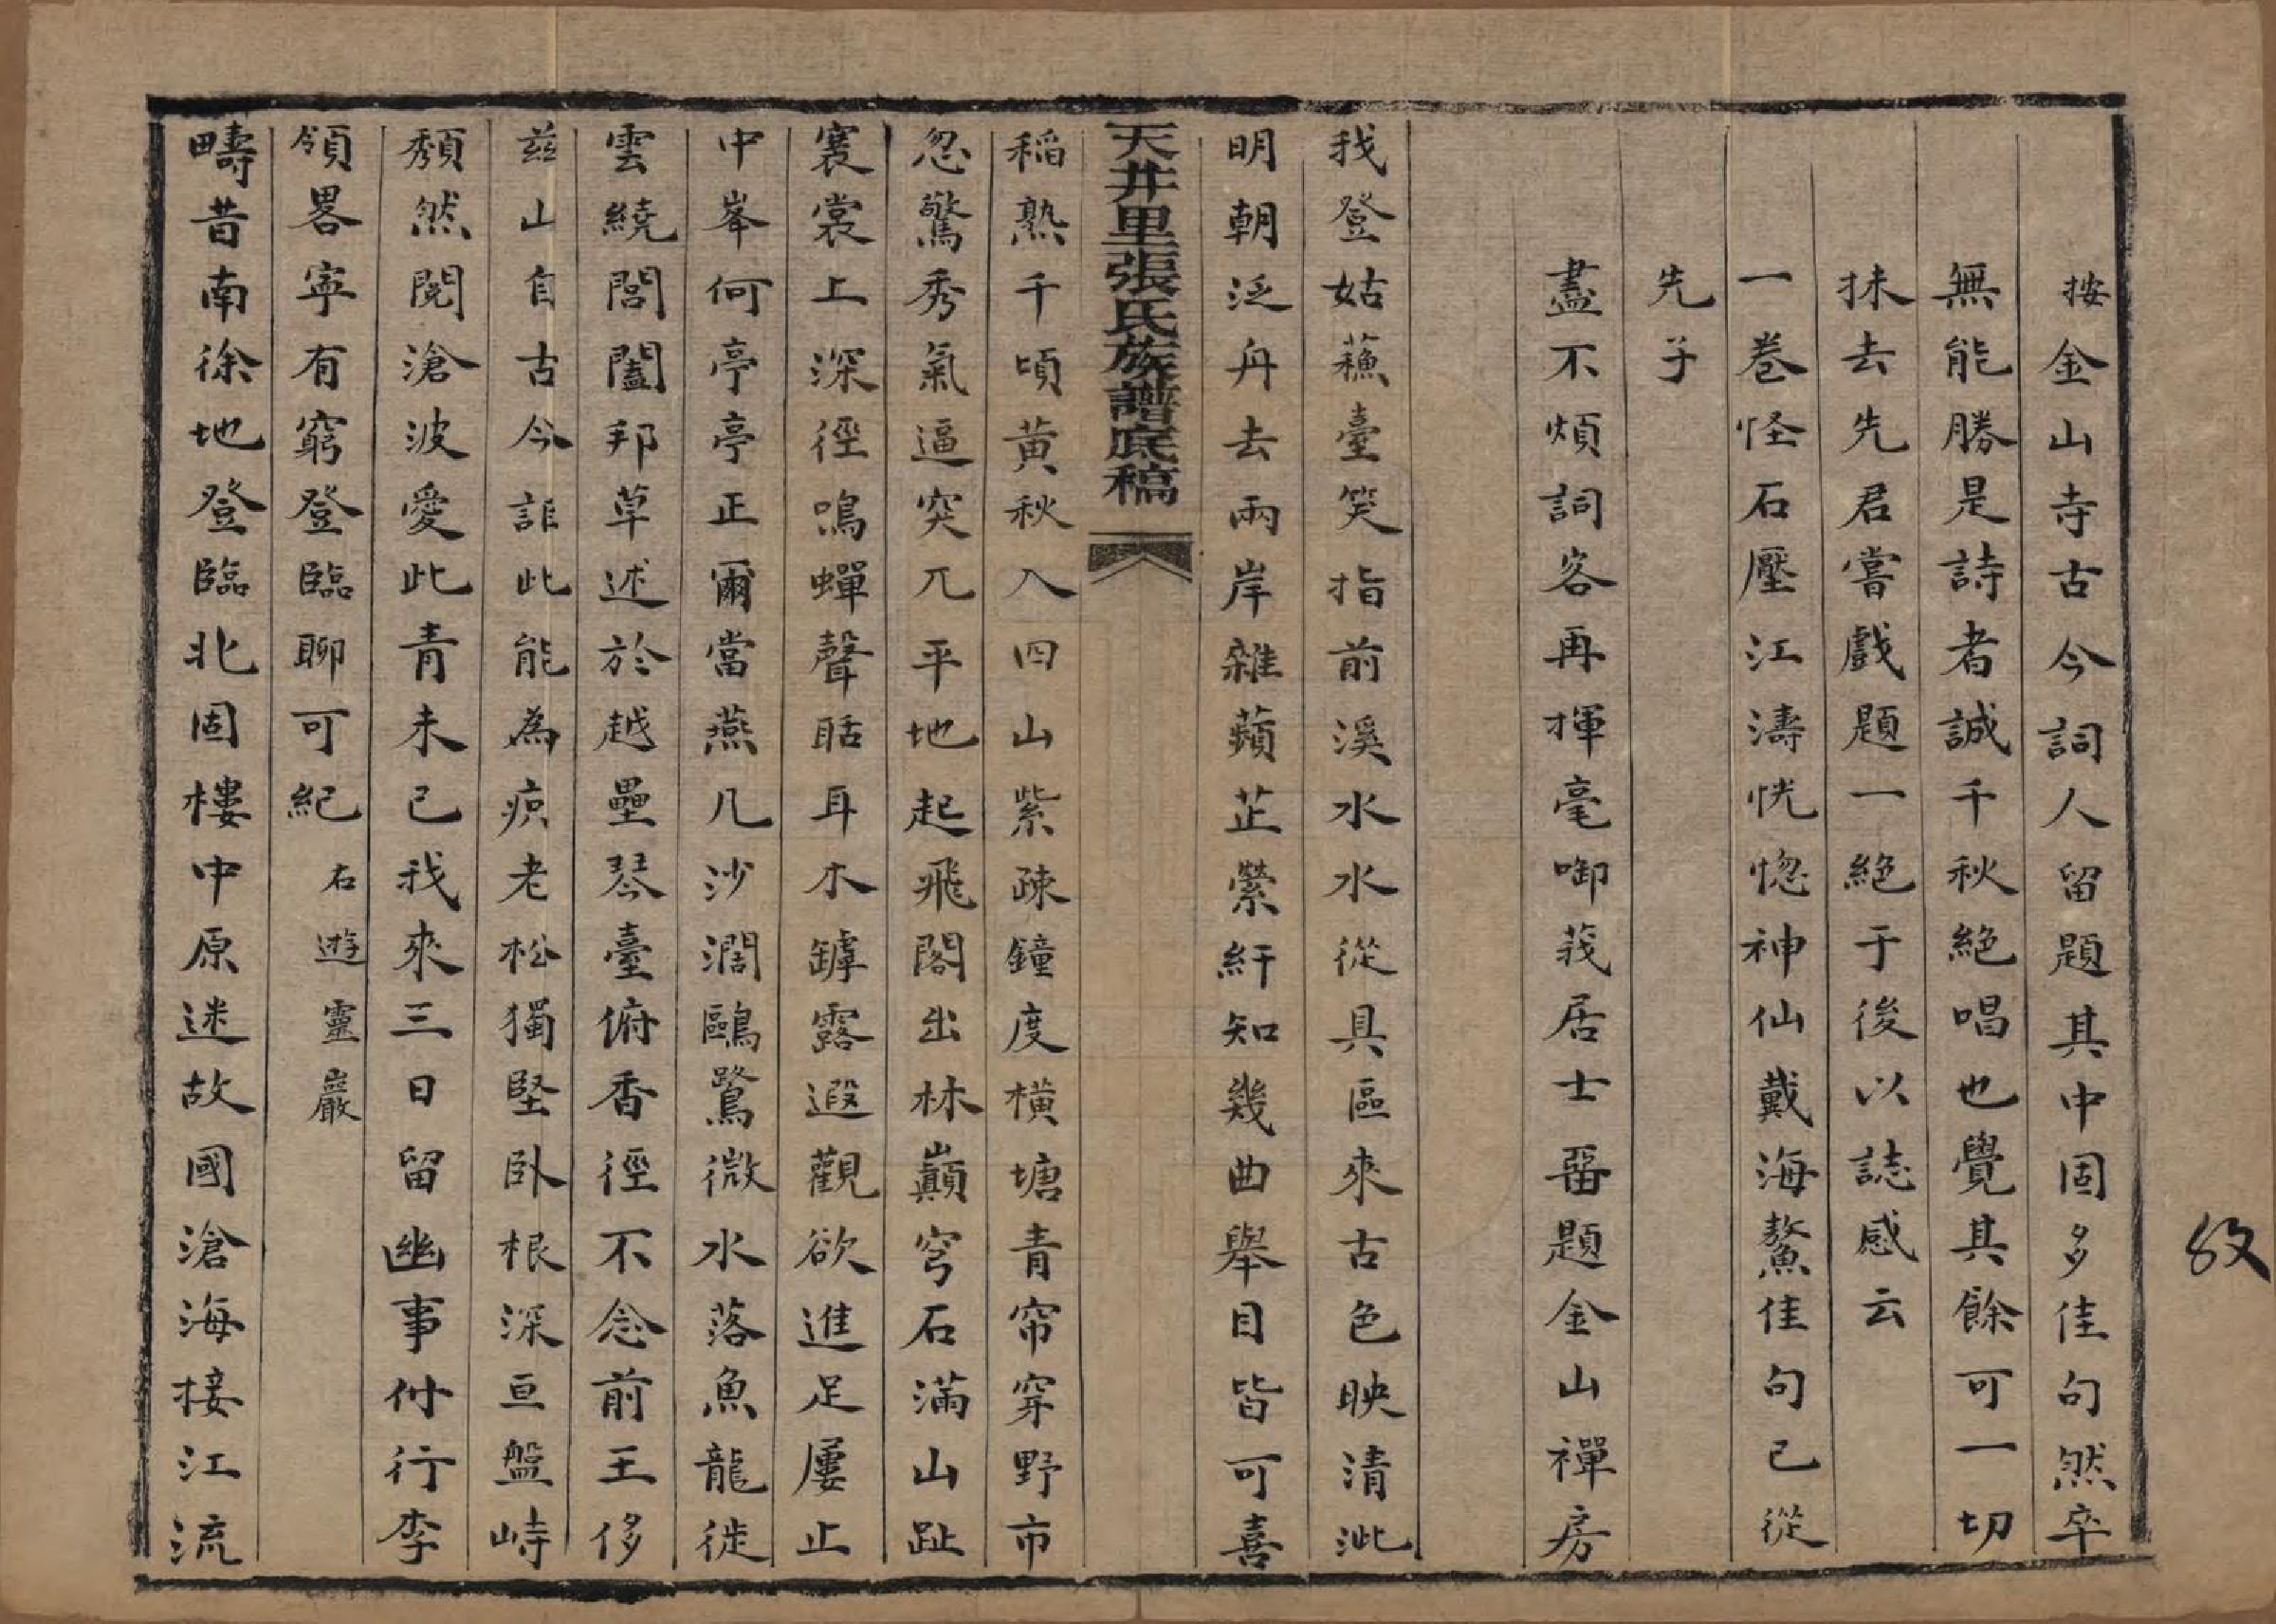 按金山寺古今詞人留題其中固多佳句然卒
無能勝是詩者誠千秋絕唱也覺其餘可一切
抹去先君嘗戲題一絕于後以誌感云
一卷怪石壓江濤恍惚神仙戴海鰲佳句已從
先子
盡不煩詞客再揮毫啣莪居士畱題金山禪房
我登姑蘓臺笑指前溪水水從具區來古色映清泚
明朝泛舟去兩岸雜蘋芷縈紆知幾曲舉目皆可喜
天井里張氏族譜底稿
稲熟千頃黄秋入四山紫疎鐘度横塘青帘穿野市
忽驚秀氣逼突兀平地起飛閣出林巔穹石滿山趾
褰裳上深徑鳴蟬聲聒耳木罅露遐觀欲進足屢止
中峯何亭亭正爾當燕几沙濶鷗鷺微水落魚龍徙
雲繞閭闔邦草述於越壘琴臺俯香徑不念前王侈
兹山自古今詎此能為疻老松獨堅臥根深亘盤峙
頽然閱滄波愛此青未已我來三日留幽事付行李
領畧寧有窮登臨聊可紀 右遊靈巖
疇昔南徐地登臨北固樓中原迷故國滄海接江流